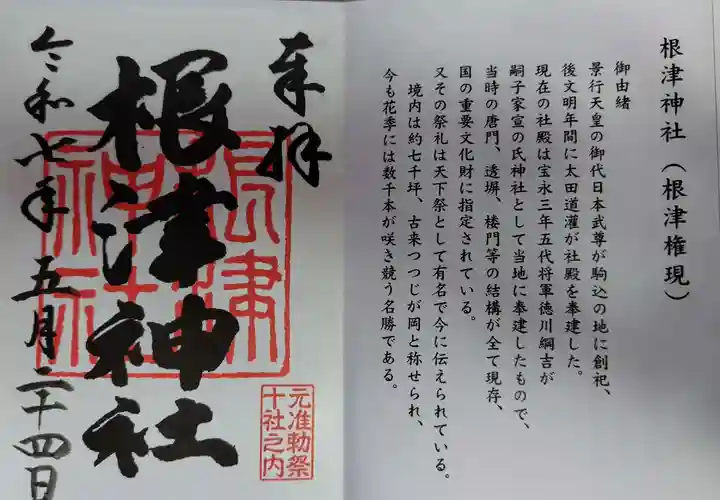 根津神社（根津権現）
御由緒
景行天皇の御代日本武尊が駒込の地に創祀、
後文明年間に太田道灌が社殿を奉建した。
現在の社殿は宝永三年五代将軍徳川綱吉が
嗣子家宣の氏神社として当地に奉建したもので、
当時の唐門、透塀、楼門等の結構が全て現存、
国の重要文化財に指定されている。
又その祭礼は天下祭として有名で今に伝えられている。
境内は約七千坪、古来つつじが岡と称せられ、
今も花季には数千本が咲き競う名勝である。
奉拝
根津神社
根津
神社
元准勅祭
十社之内
令和七年五月二十四日